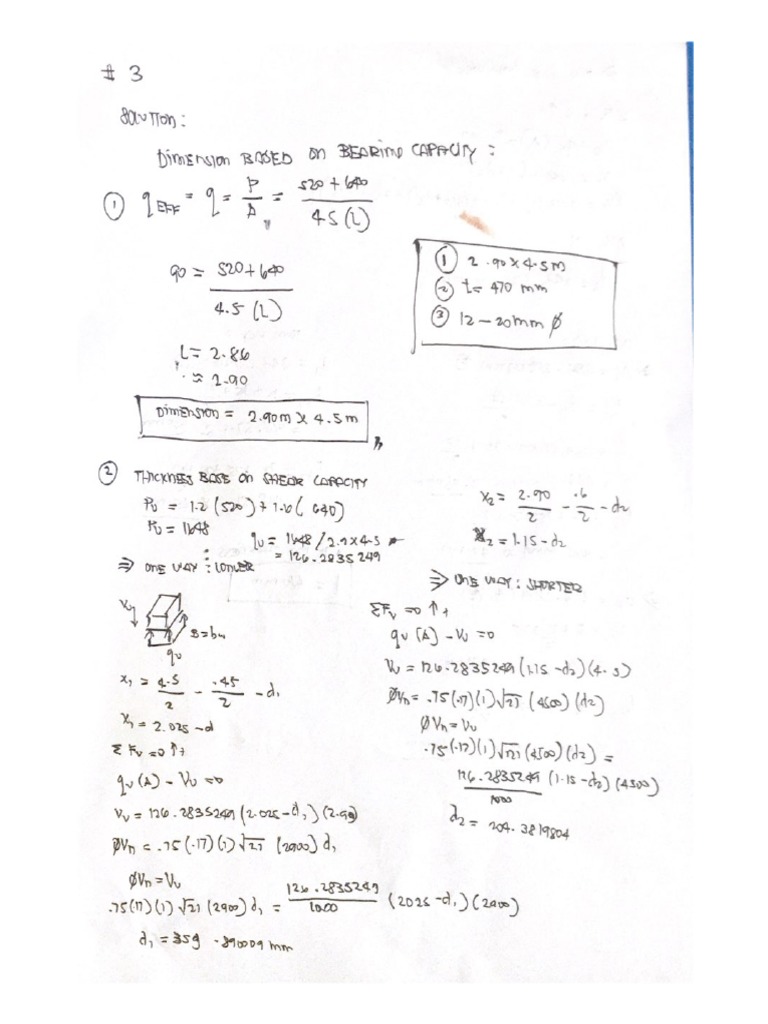 # 3
SOLUTION:
DIMENSION BASED ON BEARING CAPACITY:
① qEFF = q = P/A = 520 + 640 / 4.5 (L)
90 = 520 + 640 / 4.5 (L)
L = 2.86
≈ 2.90
DIMENSION = 2.90m X 4.5m
① 2.90 X 4.5m
② t = 470 mm
③ 12 – 20mm ϕ
② THICKNESS BASE ON SHEAR CAPACITY
Pu = 1.2 (520) + 1.6 ( 640)
Pu = 1648
qu = 1648 / 2.9 x 4.5
= 126.2835249
⇒ ONE WAY : LONGER
Vu
B = bw
qu
x1 = 4.5/2 - .45/2 - d1
x1 = 2.025 - d
Σ Fv = 0 ↑+
qu (A) - Vu = 0
Vu = 126.2835249 (2.025 - d1) (2.90)
ϕVn = .75 (.17) (1) √27 (2900) d1
ϕVn = Vu
.75 (17) (1) √27 (2900) d1 = 126.2835249/1000 (2025 - d1) (2900)
d1 = 359.890009 mm
x2 = 2.90/2 - .6/2 - d2
x2 = 1.15 - d2
⇒ ONE WAY : SHORTER
ΣFv = 0 ↑+
qu (A) - Vu = 0
Vu = 126.2835249 (1.15 - d2) (4.5)
ϕVn = .75 (.17) (1) √27 (4500) (d2)
ϕVn = Vu
.75 (.17) (1) √27 (4500) (d2) =
126.2835249/1000 (1.15 - d2) (4500)
d2 = 204.3819804